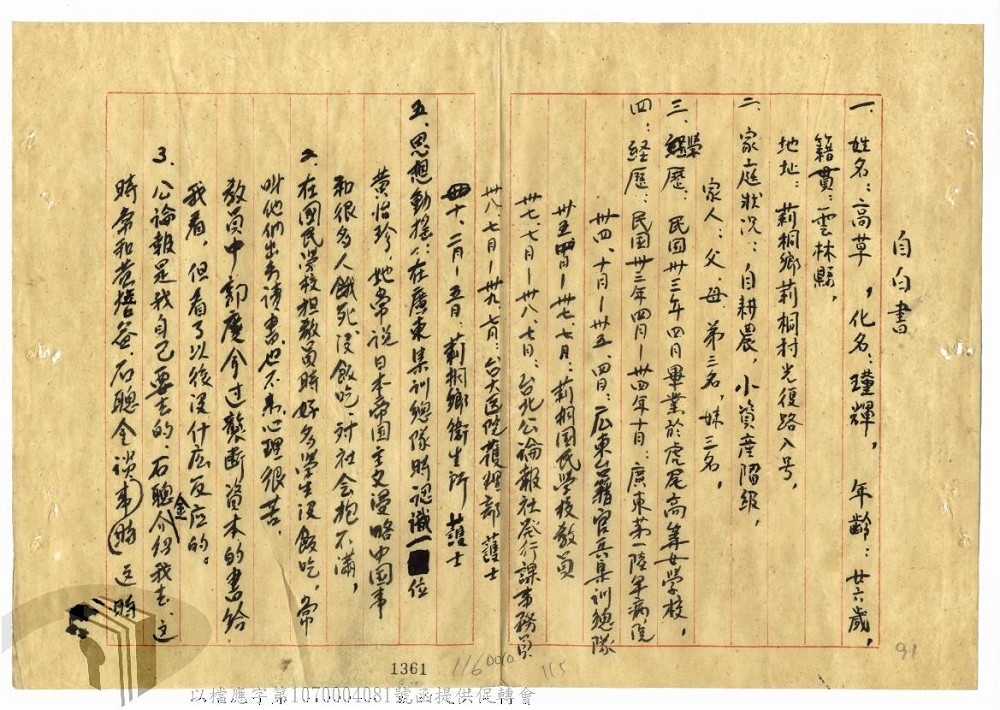 自白書
一、姓名：高草　，化名：瑾輝，　年齡：廿六歲，
籍貫：雲林縣，
地址：莿桐鄉莿桐村光復路八号，
二、家庭狀況：自耕農，小資産階級，
家人：父、母、弟三名，妹三名，
三：學歷：民国卅三年四月畢業於虎尾高等女學校，
四：経歷：民国卅三年四月—卅四年十月：廣東第一陸軍病院
卅四、十月—卅五、四月：広東台籍官兵集訓總隊
卅五、四月—卅七、七月：莿桐国民學校教員
卅七、七月—卅八、七月：台北公論報社発行課事務員
卅八、七月—卅九、七月：台大医院護理部護士
四十、二月—五月：莿桐鄉衛生所護士
五、思想動摇：在廣東集訓總隊時認識一位
黄怡珍，她常説日本帝国主义侵略中国事
和很多人餓死没飯吃，对社会抱不满，
2、在國民學校担教員時好多學生没飯吃，常
叫他们出去读書也不来心理很苦，
教員中郭慶介过壟断資本的書给
我看，但看了以後没什庅反应的。
3、公論報是我自己要去的，石聰金介绍我去、这
時常和黄培奕、石聰金谈事，这時
91
1361
116
0010
115
以檔應字第1070004081號函提供促轉會